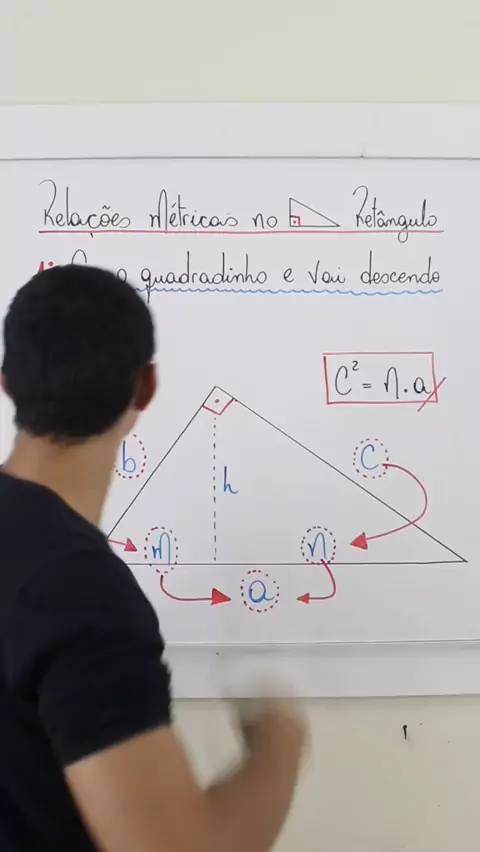 Relações Métricas no Retângulo
quadradinho e vai descendo
C² = n.a
b
c
h
m
n
a